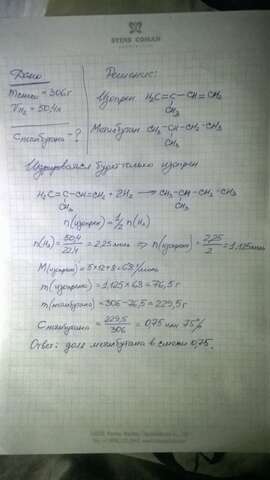 STENS COMAN
Дано
Решение:
mсмеси = 306г
VH₂ = 50,4л
Cметбутана - ?
Изопрен H₂C=C-CH=CH₂
CH₃
Метбутан CH₃-CH-CH₂-CH₃
CH₃
Гидрироваться будет только изопрен
H₂C=C-CH=CH₂ + 2H₂ → CH₃-CH-CH₂-CH₃
CH₃ CH₃
n(изопрен) = 1/2 n(H₂)
n(H₂) = 50,4/22,4 = 2,25 моль ⇒ n(изопрен) = 2,25/2 = 1,125 моль
M(изопрена) = 5×12+8 = 68 г/моль
m(изопрена) = 1,125×68 = 76,5 г
m(метбутана) = 306-76,5 = 229,5 г
Cметбутана = 229,5/306 = 0,75 или 75%
Ответ: доля метбутана в смеси 0,75.